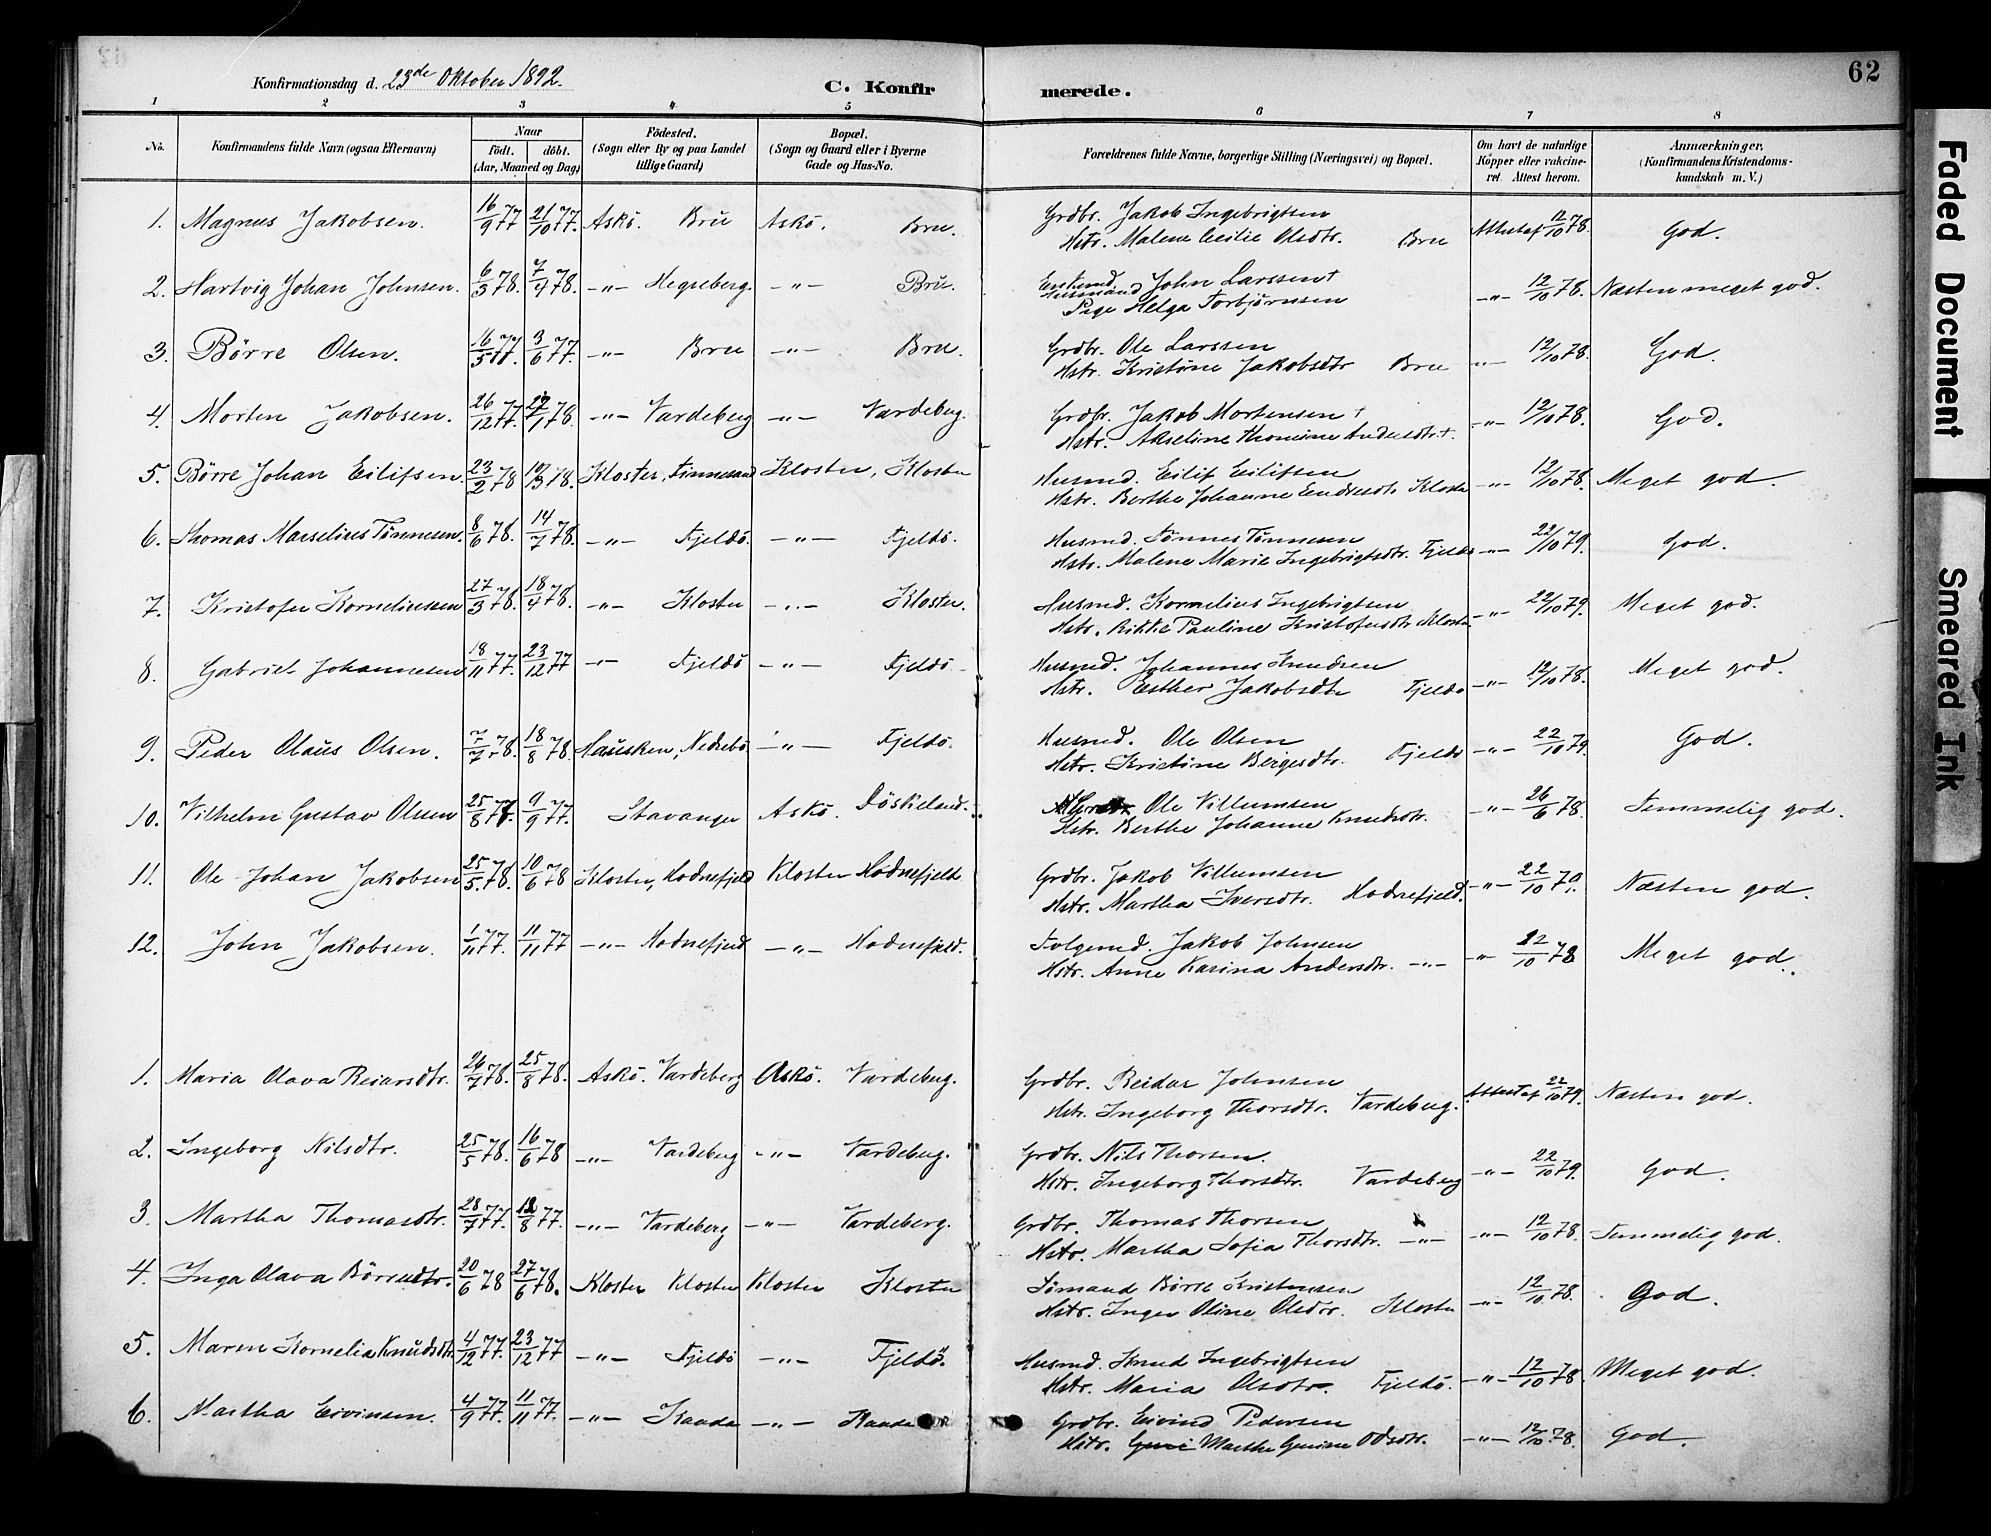 62
Konfirmationsdag d. 23de Oktober 1892.
C. Konfir merede.
1 2 3 4 5 6 7 8
No. Konfirmandens fulde Navn (ogsaa Efternavn) Naar Födested. Bopæl. Forældrenes fulde Navne, borgerlige Stilling (Næringsvei) og Bopæl. Om havt de naturlige Anmærkninger.
födt. döbt. (Sogn eller By og paa Landet (Sogn og Gaard eller i Byerne Kopper eller vakcine- (Konfirmandens Kristendoms-
(Aar, Maaned og Dag) tillige Gaard) Gade og Hus-No. ret. Attest herom. kundskab m. V.)
1. Magnus Jakobsen. 16/9 77 21/10 77. Askö. Bru Askö. Bru. Grdbr. Jakob Ingebrigtsen
Hstr. Malene Cecilie Olsdtr. Bru Attest af 12/10 78. God.
2. Hartvig Johan Johnsen. 6/3 78. 7/4 78. -"- Hegreberg. -"- Bru. Enkemd. Husmand John Larssen†
Pige Helga Torbjörnsen -"- 12/10 78. Næsten meget god.
3. Börre Olsen. 16/5 77. 3/6 77. -"- Bru -"- Bru. Grdbr. Ole Larssen
Hstr. Kristine Jakobsdtr Bru -"- 12/10 78. God.
4. Morten Jakobsen. 26/12 77. /1 78. -"- Vardeberg -"- Vardeberg. Grdbr. Jakob Mortensen †
Hstr. Akseline Thomine Andersdtr.†. -"- 12/10 78. God.
5. Börre Johan Eilifsen. 23/2 78 /3 78. Kloster, Finnesand Kloster, Kloster Husmd. Eilif Eilifsen
Hstr. Berthe Johanne Endresdtr. Kloster -"- 12/10 78. Meget god.
6. Thomas Marselius Tönnesen. 8/6 78. 14/7 78. -"- Fjeldö. -"- Fjeldö. Husmd. Tönnes Tönnesen
Hstr. Malene Marie Ingebrigtsdtr. Fjeldö -"- 22/10 79. God.
7. Kristofer Korneliussen 27/3 78. 18/4 78. -"- Kloster -"- Kloster. Husmd. Kornelius Ingebrigtsen
Hstr. Rikke Pauline Kristofersdtr Kloster. -"- 22/10 79. Meget god.
8. Gabriel Johannesen 18/11 77. 23/12 77 -"- Fjeldö -"- Fjeldö Husmd. Johannes Knudsen
Hstr. Esther Jakobsdtr Fjeldö -"- 12/10 78. Meget god.
9. Peder Olaus Olsen. 7/7 78. 18/8 78. Hausken, Nedrebö -"- Fjeldö. Husmd. Ole Olsen
Hstr. Kristine Bergesdtr. Fjeldö -"- 22/10 79. God.
10. Vilhelm Gustav Olsen 25/8 77. 9/9 77. Stavanger Askö. Döskeland. Ole Villumsen
Hstr. Berthe Johanne Knudsdtr. -"- 26/6 78. Temmelig god.
11. Ole Johan Jakobsen 25/5 78. 10/6 78 Kloster, Hodnefjeld Kloster Hodnefjeld Grdbr. Jakob Villumsen
Hstr. Martha Iversdtr. Hodnefjeld. -"- 22/10 79. Næsten god.
12. John Jakobsen. 1/11 77. 11/11 77 -"- Hodnefjeld -"- Hodnefjeld. Folgemd. Jakob Johnsen
Hstr. Anne Karina Andersdtr. -"- -"- 12/10 78 Meget god.
1. Maria Olava Reiarsdtr. 26/7 78. 25/8 78. Askö. Vardeberg Askö. Vardeberg. Grdbr. Reidar Johnsen
Hstr. Ingeborg Thorsdtr. Vardeberg. Attest af 22/10 79. Næsten god.
2. Ingeborg Nilsdtr. 25/5 78. 16/6 78 -"- Vardeberg -"- Vardeberg. Grdbr. Nils Thorsen.
Hstr. Ingeborg Thorsdtr. Vardeberg -"- 22/10 79. God.
3. Martha Thomasdtr. 28/7 77. 12/8 77. -"- Vardeberg -"- Vardeberg. Grdbr. Thomas Thorsen
Hstr. Martha Sofia Thorsdtr. -"- -"- 12/10 78. Temmelig god.
4. Inga Olava Börresdtr. 20/6 78 27/6 78. Kloster Kloster Kloster Kloster Sömand Börre Kristensen
Hstr. Inger Oline Olsdtr. Kloster -"- 12/10 78. God.
5. Maren Kornelia Knudsdtr. 4/12 77. 23/12 77 -"- Fjeldö -"- Fjeldö. Husmd. Knud Ingebrigtsen
Hstr. Maria Olsdtr. Fjeldö. -"- 12/10 78. Meget god.
6. Martha Eivinsen. 4/9 77. 11/11 77. -"- Haada -"- Haada Grdbr. Eivind Pedersen
Hstr. Marthe Gurine Odsdtr. -"- 12/10 78. God.
Faded Document
Smeared Ink